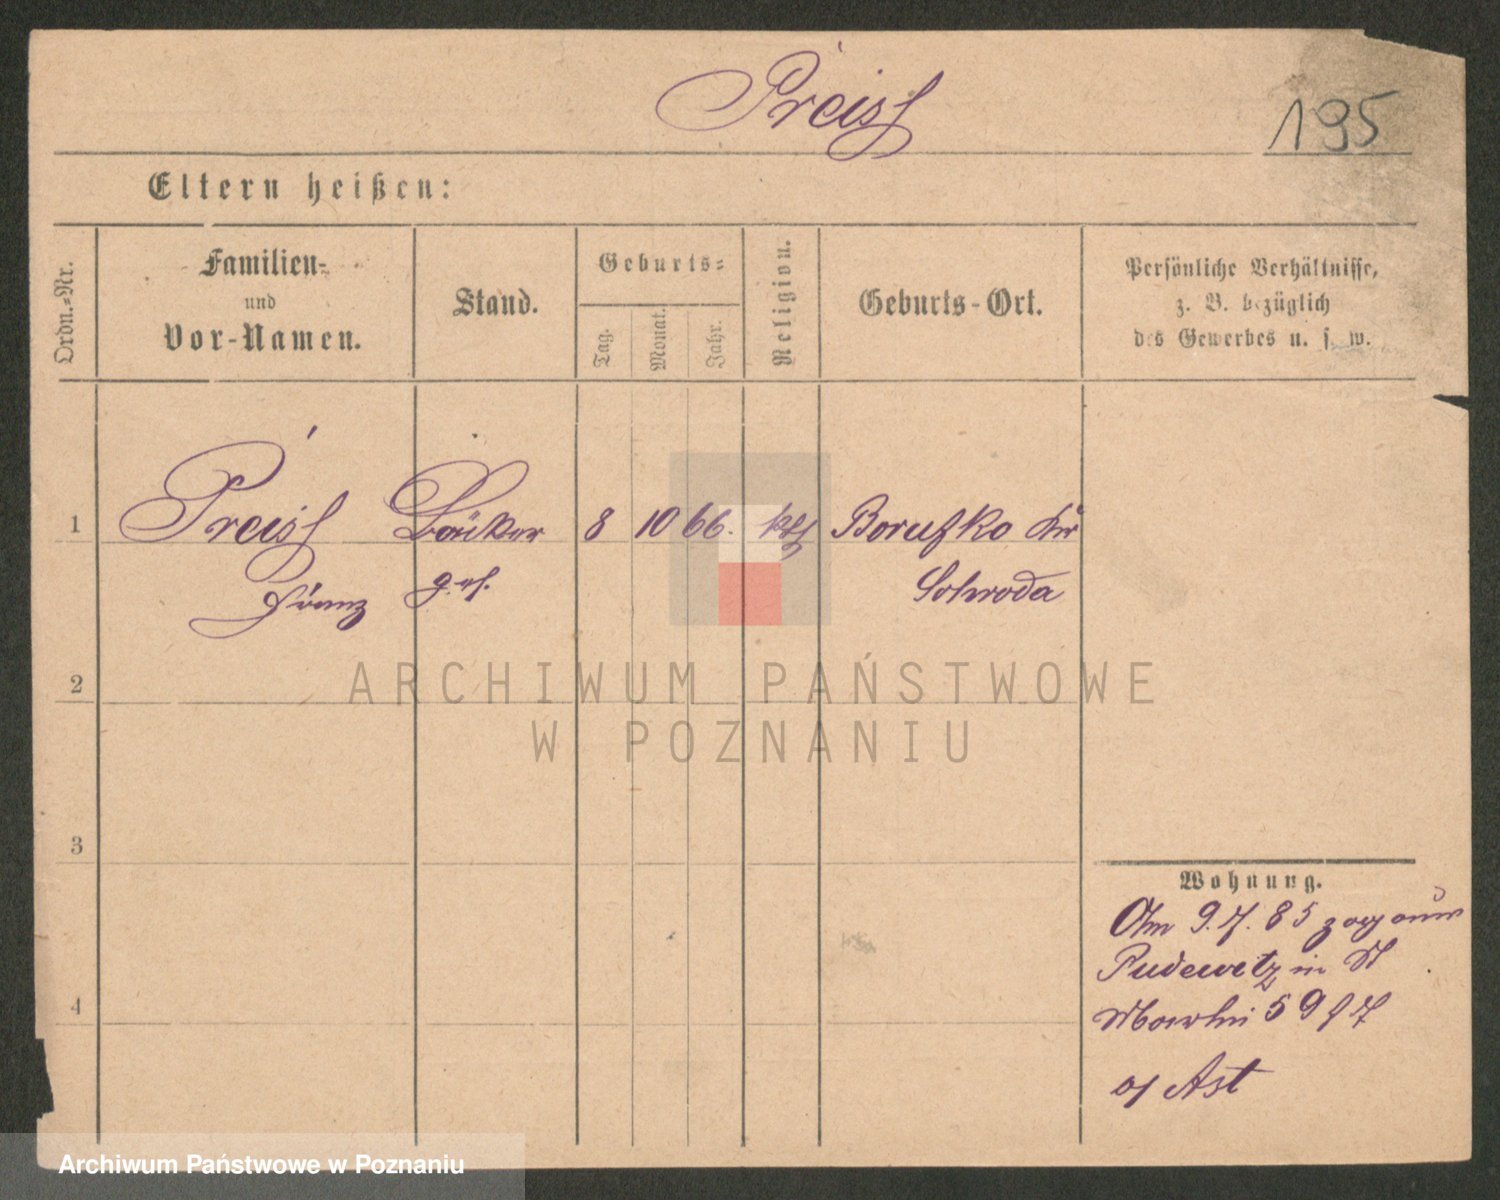 Preiß
195
Eltern heißen:
Ordn.=Nr.
Familien=
und
Vor-Namen.
Stand.
Geburts=
Tag.
Monat.
Jahr.
Religion.
Geburts-Ort.
Persönliche Verhältnisse,
z. B. bezüglich
des Gewerbes u. s. w.
1
Preiß Bäcker 8 10 66. kth
Franz ges.
Schroda
2
3
4
Wohnung.
Am 9.7.85 zog aus
Pudewitz in St
5
Ast
ARCHIWUM PAŃSTWOWE
W POZNANIU
Archiwum Państwowe w Poznaniu